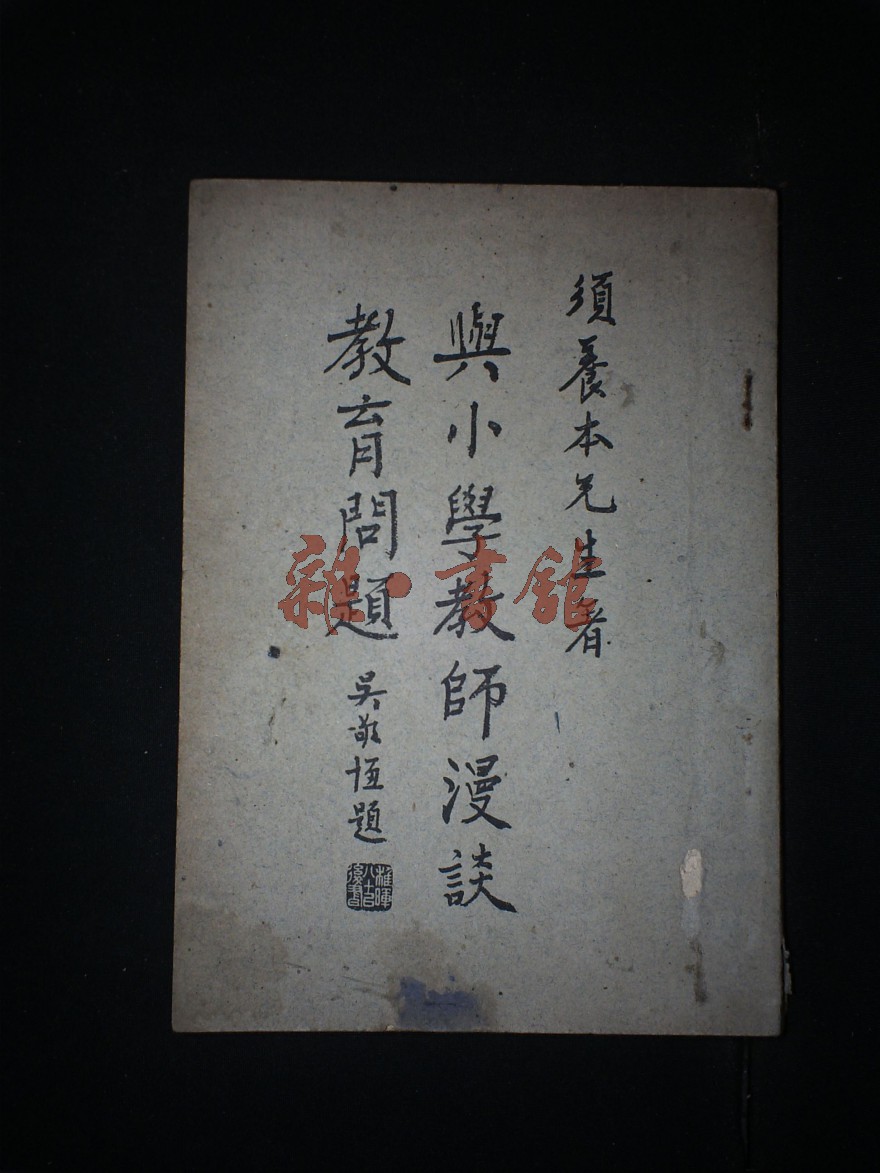 須養本先生著
與小學教師漫談
教育問題
吳敬恆題
稚暉八十後書
雜·書館